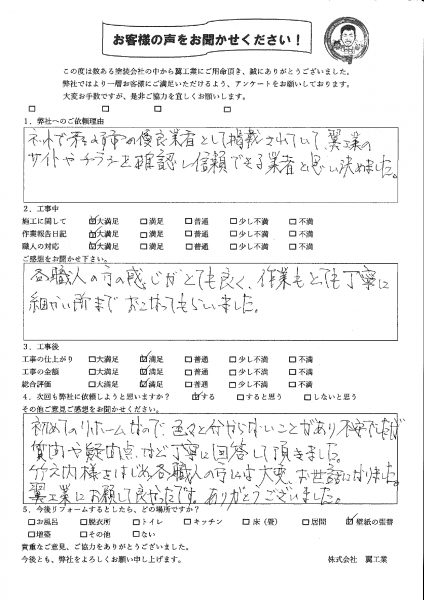 お客様の声をお聞かせください！
この度は数ある塗装会社の中から翼工業にご用命頂き、誠にありがとうございました。
弊社ではより一層お客様にご満足いただけるよう、アンケートをお願いしております。
大変お手数ですが、是非ご協力を宜しくお願いします。
□ □ □ □ □
1．弊社へのご依頼理由
ネットで 市の優良業者として掲載されていて、翼工業の
サイトやチラシを確認し信頼できる業者と思い決めました。
2．工事中
施工に関して ☑大満足 □満足 □普通 □少し不満 □不満
作業報告日記 ☑大満足 □満足 □普通 □少し不満 □不満
職人の対応 ☑大満足 □満足 □普通 □少し不満 □不満
ご感想をお聞かせ下さい。
各職人の方の感じがとても良く、作業もとても丁寧に
細かい所までおこなってもらいました。
3．工事後
工事の仕上がり □大満足 ☑満足 □普通 □少し不満 □不満
工事の金額 □大満足 ☑満足 □普通 □少し不満 □不満
総合評価 □大満足 ☑満足 □普通 □少し不満 □不満
4．次回も弊社に依頼しようと思いますか？ ☑する □すると思う □しないと思う
その他ご意見ご感想をお聞かせください。
初めてのリホームなので、色々と分からないことがあり不安でしたが
質問や疑問点など丁寧に回答して頂きました。
竹之内様をはじめ各職人の方には大変、お世話になりました。
翼工業にお願して良かったです。ありがとうございました。
5．今後リフォームするとしたら、どの場所ですか？
□お風呂 □脱衣所 □トイレ □キッチン □床（畳） □居間 ☑壁紙の張替
□増築 □その他 □ない
貴重なご意見、ご協力をありがとうございました。
今後とも、弊社をよろしくお願い申し上げます。 株式会社 翼工業